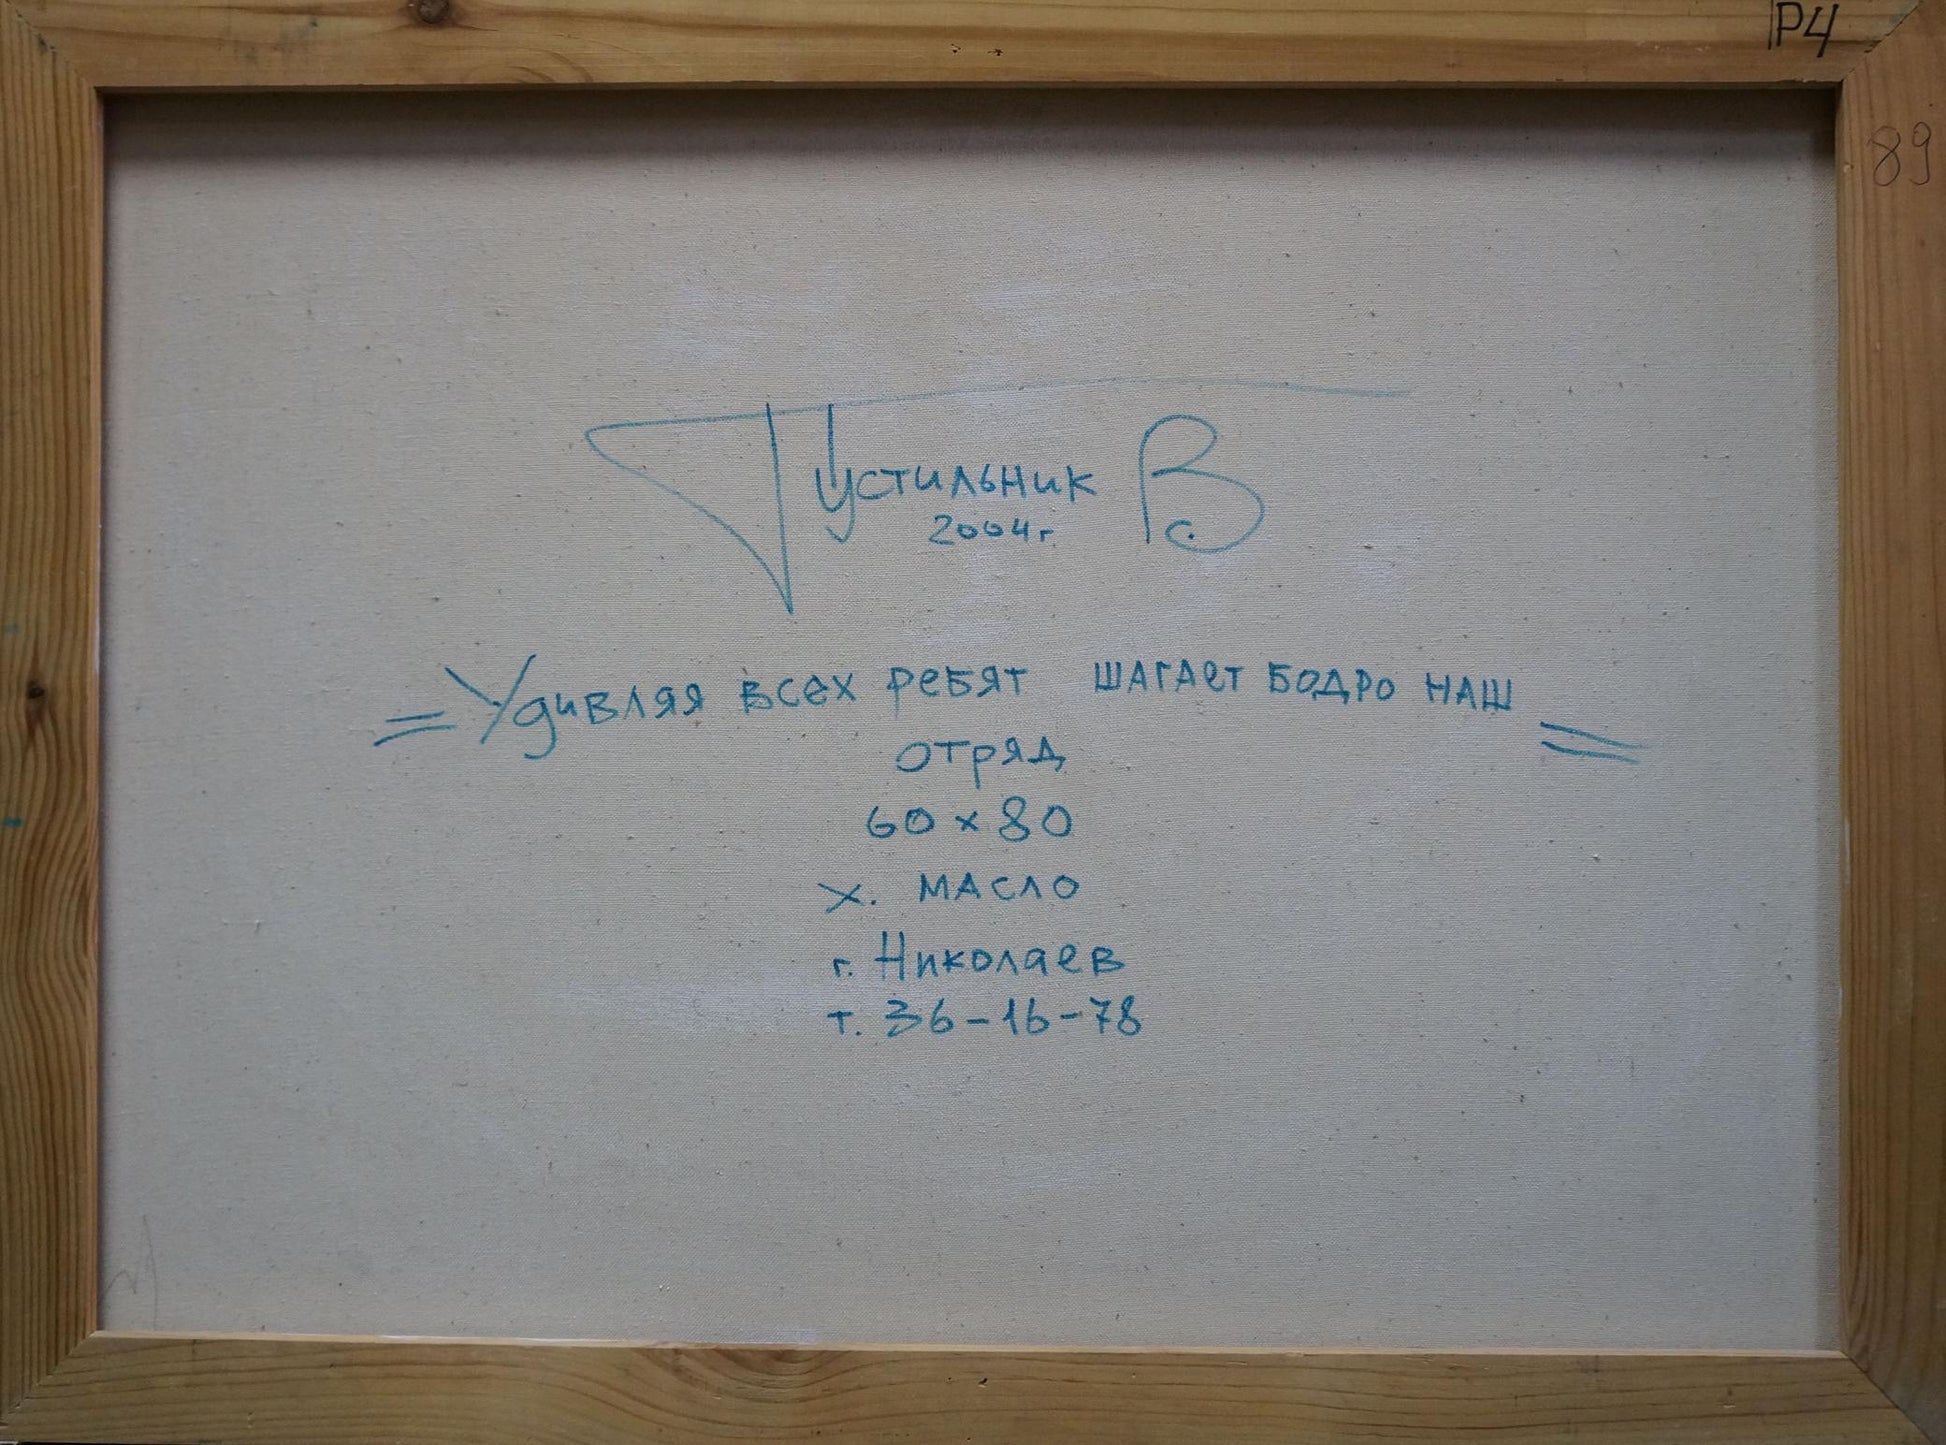 Р4
89
Пустильник В.С.
2004г
=Удивляя всех ребят шагает бодро наш=
отряд
60×80
х. масло
г. Николаев
т. 36-16-78